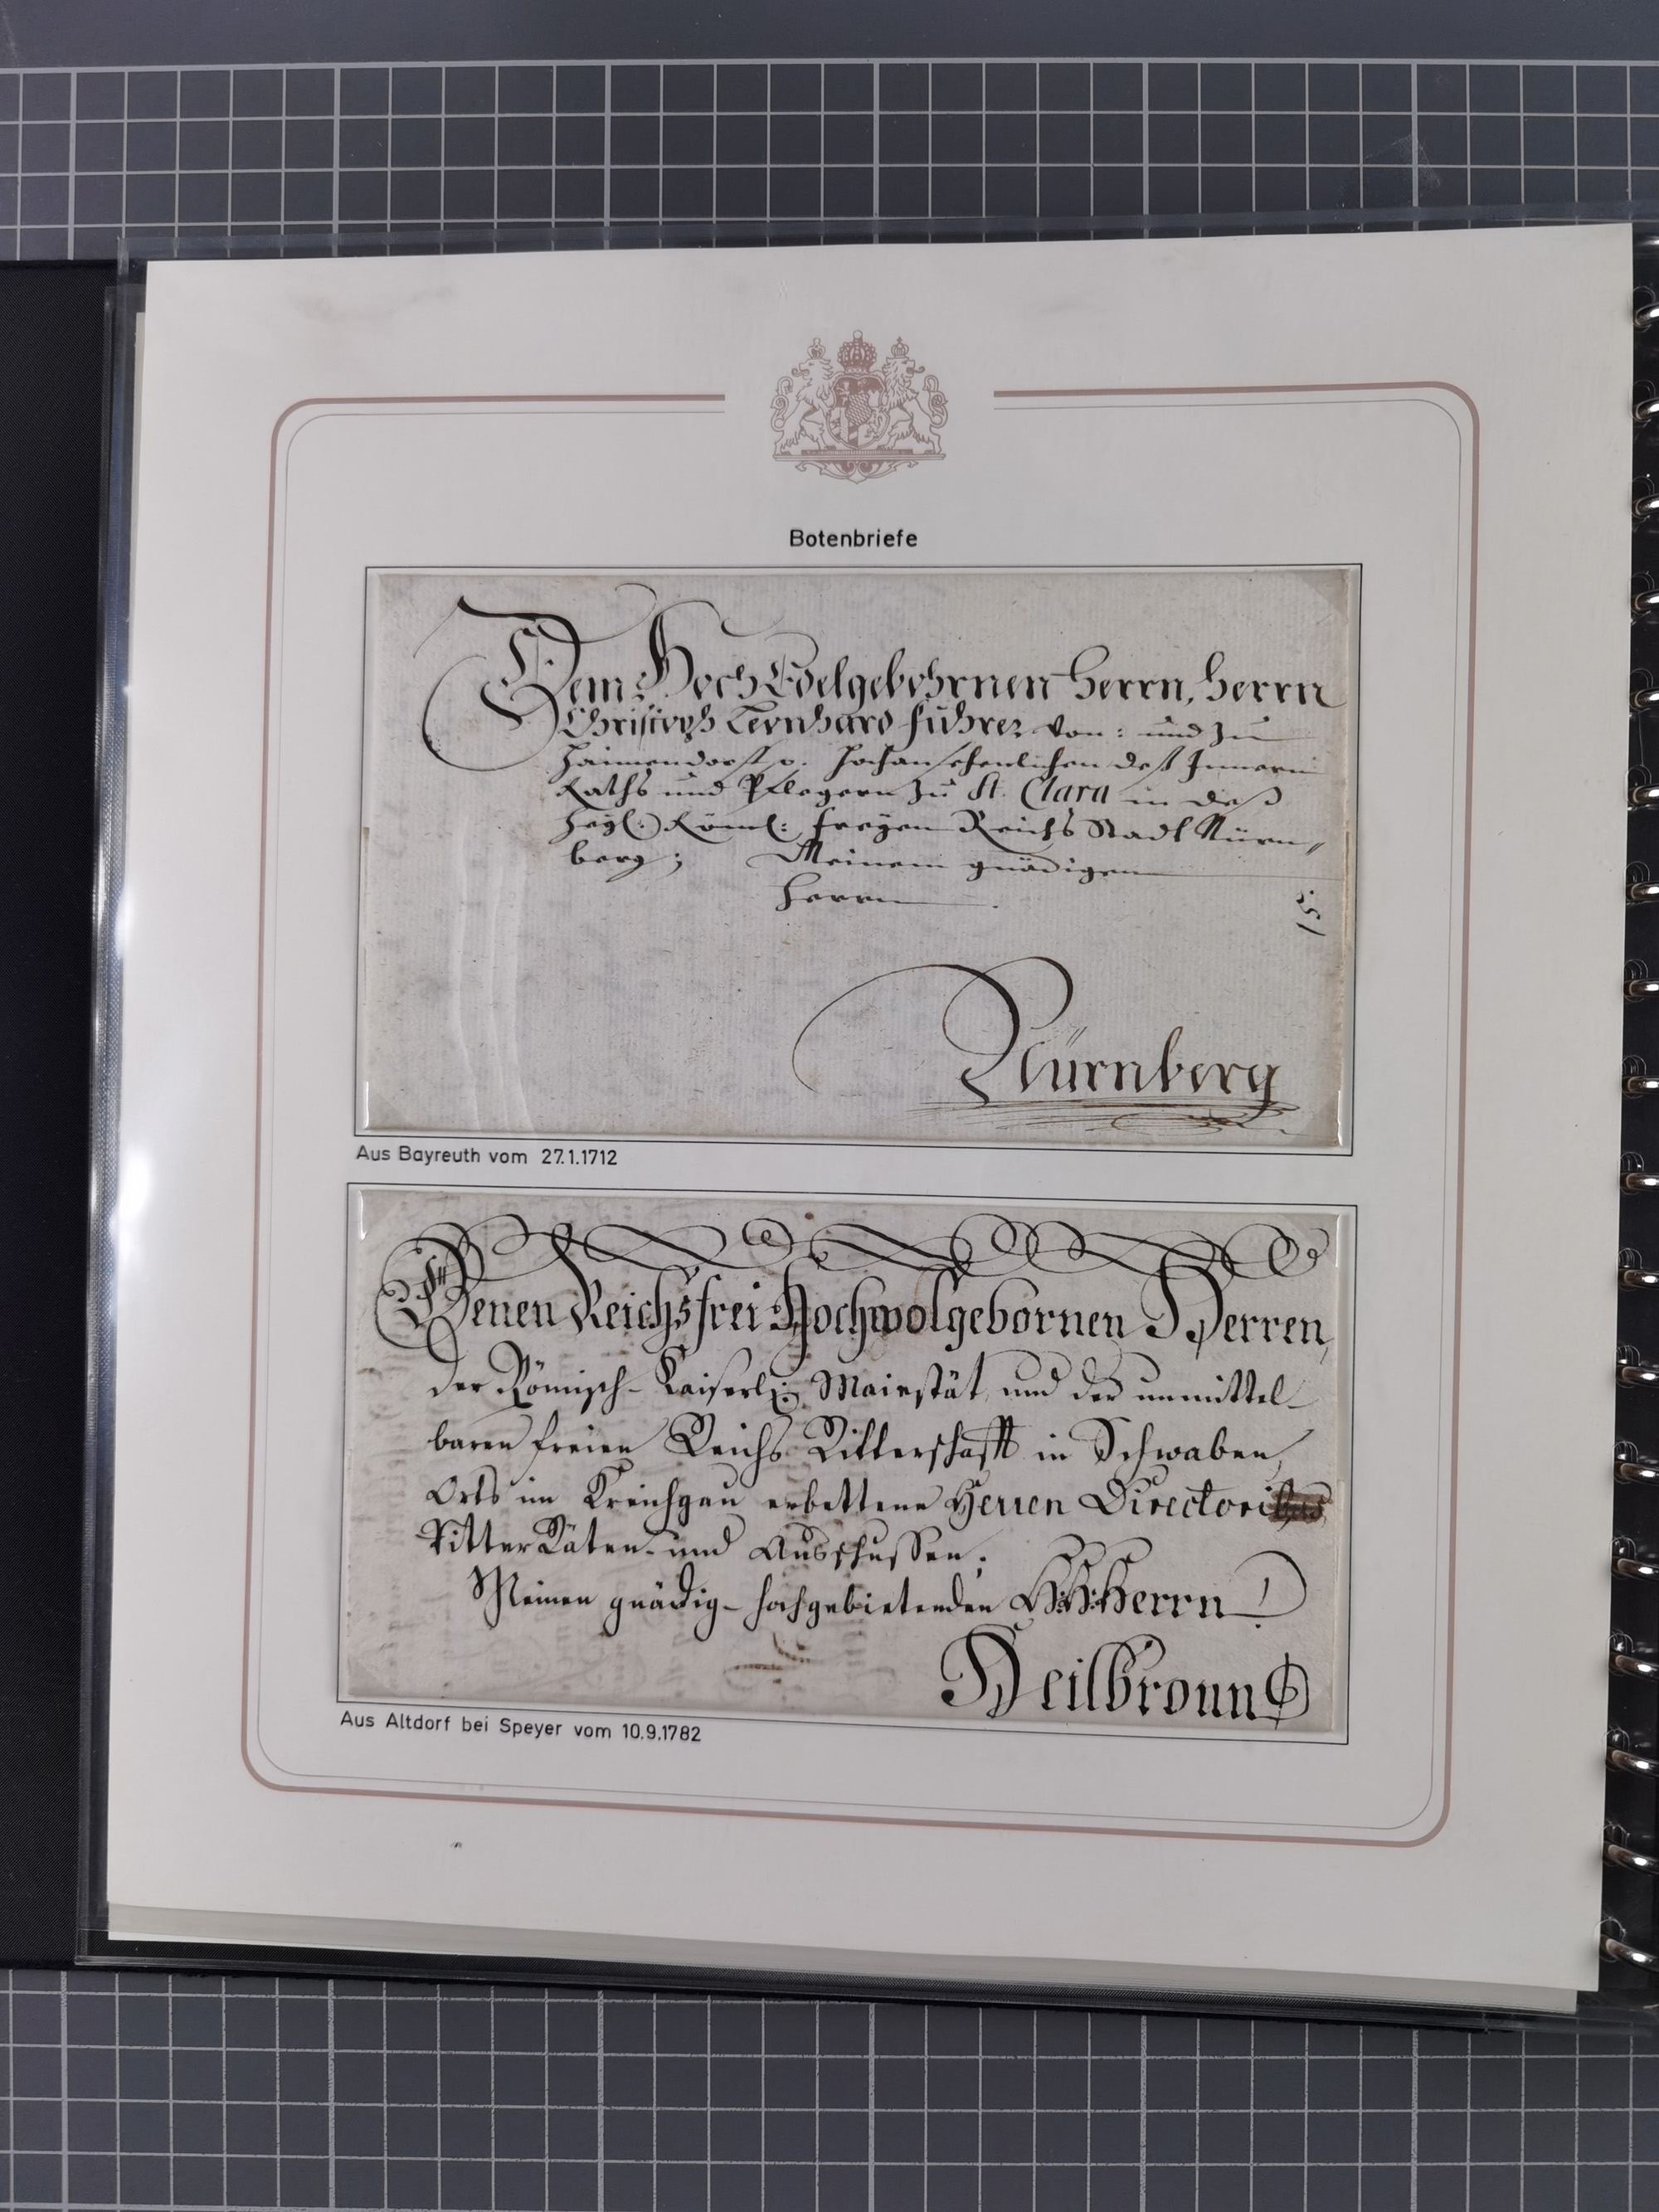 Botenbriefe
Dem HochEdelgebohrnen Herrn, Herrn
Christoph Bernhard Führer von: und zu
Haimendorff p. Hochansehenlichen deß Innern
Raths und Pflegern zu St. Clara in deß
Heyl: Röml: freyen Reichs Stadt Nürn„
berg; Meinem gnädigen
Herrn
15.
Nürnberg
Aus Bayreuth vom 27.1.1712
Denen Reichsfrei Hochwolgebornen Herren,
der Römisch-Kaiserl: Maiestät, und der unmittel-
baren freien Reichs Ritterschafft in Schwaben,
Orts im Kreichgau erbettene Herren Directori
RitterRäten- und Ausschussen.
Meinen gnädig-hochgebietenden H:H:Herrn
Heilbronn
Aus Altdorf bei Speyer vom 10.9.1782